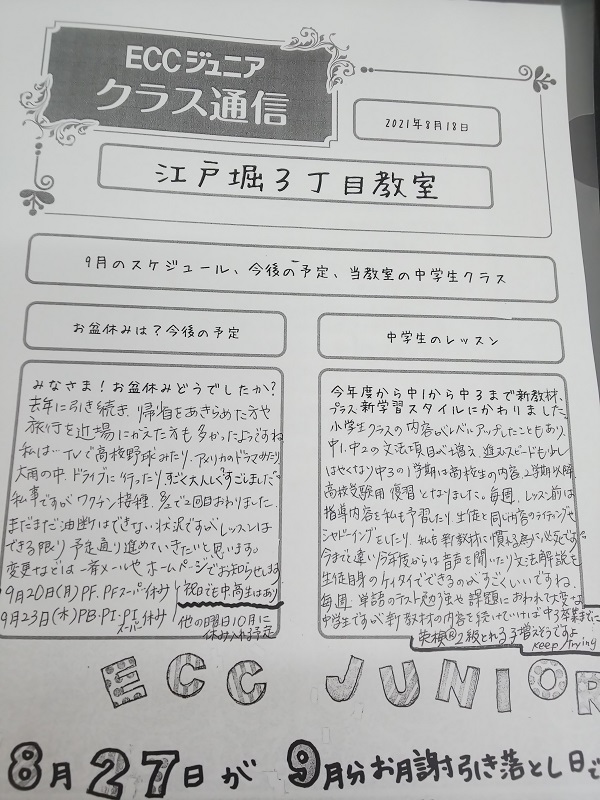 ECCジュニア
クラス通信
2021年8月18日
江戸堀3丁目教室
9月のスケジュール、今後の予定、当教室の中学生クラス
お盆休みは?今後の予定
みなさま!お盆休みどうでしたか?
去年に引き続き 帰省をあきらめた方や
旅行を近場にかえた方も多かったようですね
私は…TVで高校野球みたり、アメリカのドラマみたり
大雨の中、ドライブに行ったりすごく大人しくすごしました。
私事ですがワクチン接種、8/2で2回目おわりました。
まだまだ油断はできない状況ですがレッスンは
できる限り予定通り進めていきたいと思います。
変更などは一斉メールやホームページでお知らせします
9月20日(月)PF.PFスーパー休み
9月23日(木)PB.PI.PIスーパー休み
祝日でも中高生はあり
他の曜日10月に
休み入れる予定
中学生のレッスン
今年度から中1から中3まで新教材、
プラス新学習スタイルにかわりました。
小学生クラスの内容がレベルアップしたこともあり、
中1.中2の文法項目が増え、進むスピードも少し
はやくなり中3の1学期は高校生の内容、2学期以降
高校受験用復習となりました。毎週、レッスン前は
指導内容を私も予習したり生徒と同じ内容のライティングや
シャドーイングをしたり、私も新教材に慣れる為に必死です。
今までと違い今年度からは音声を聞いたり文法解説も
生徒自身のケイタイでできるのがすごくいいですね。
毎週、単語のテスト勉強や課題におわれて大変な
中学生ですが新教材の内容を続けていけば中3卒業までに
英検®2級とれる子増えそうですよ
Keep Trying
ECC JUNIOR
8月27日が 9月分お月謝引き落とし日で